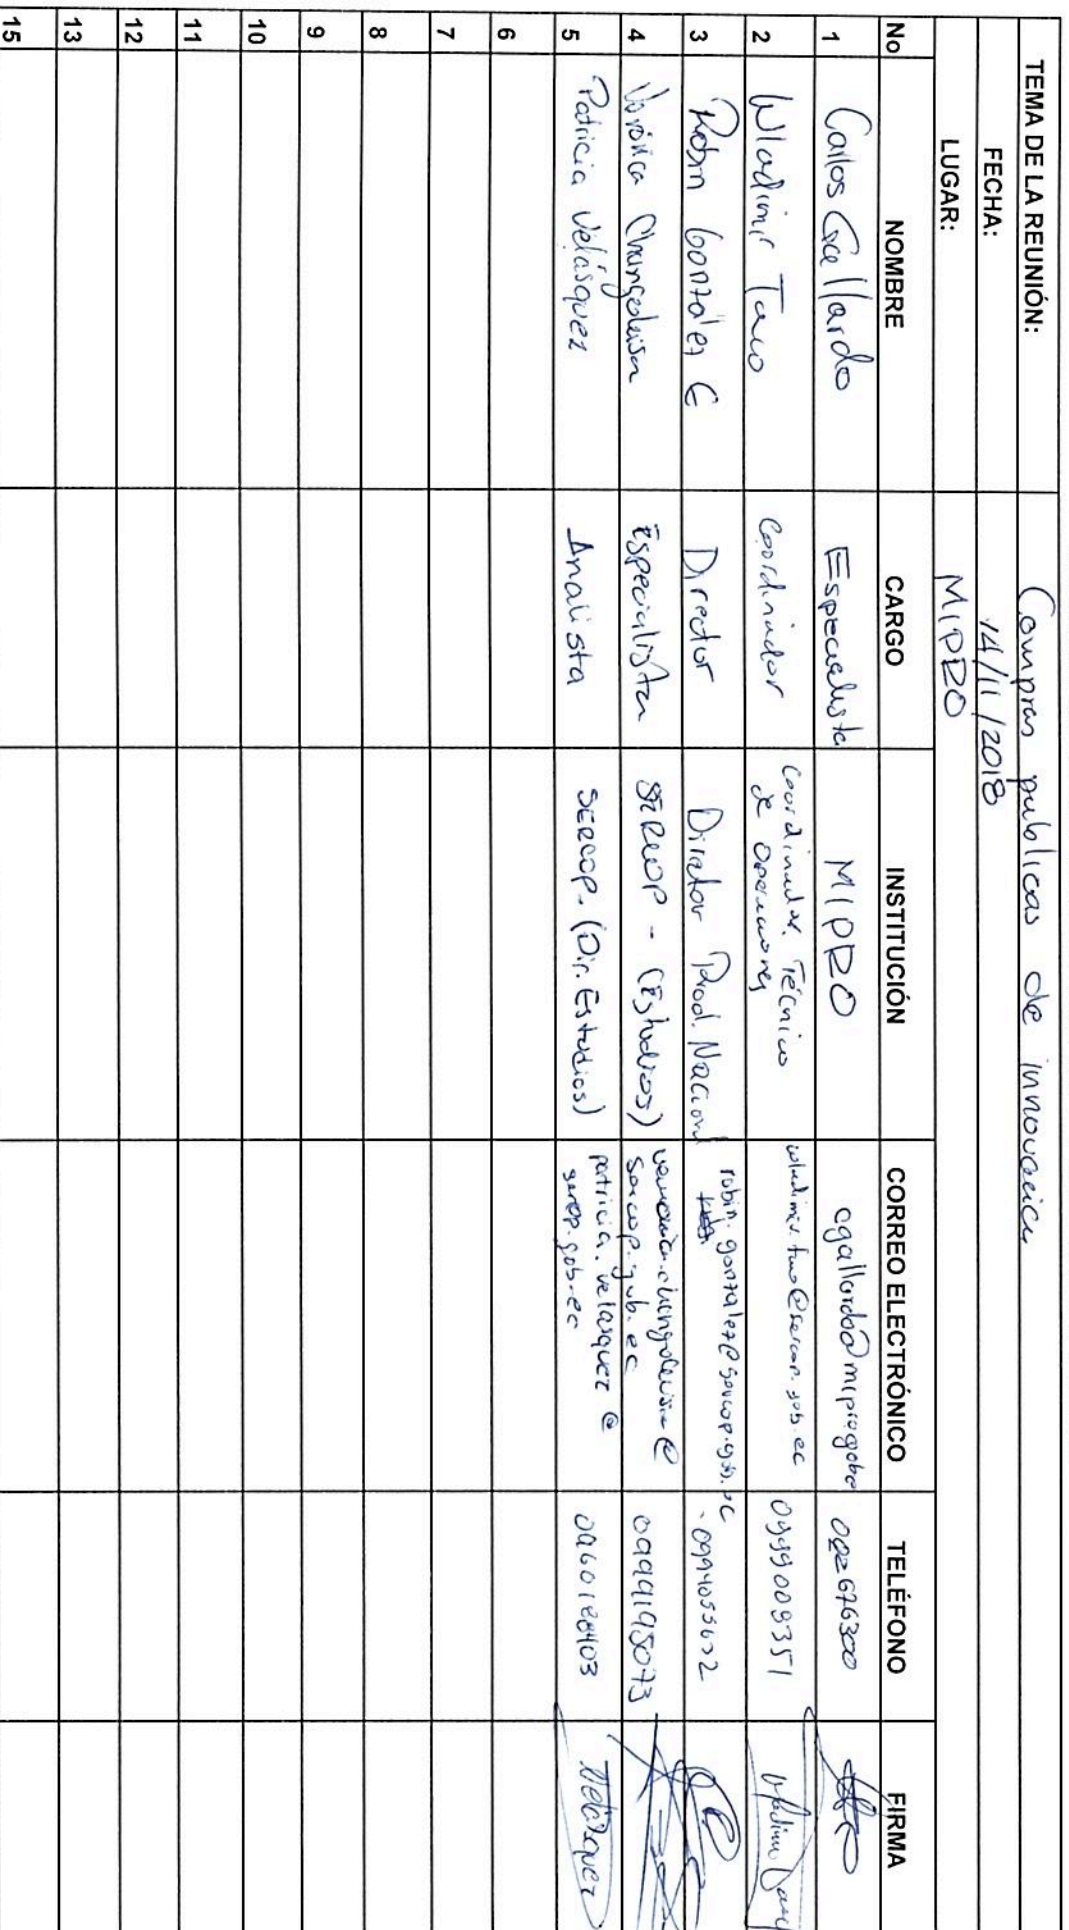 TEMA DE LA REUNIÓN: Compras publicas de innovación
FECHA: 14/11/2018
LUGAR: MIPRO
No NOMBRE CARGO INSTITUCIÓN CORREO ELECTRÓNICO TELÉFONO FIRMA
1 Carlos Gallardo Especialista MIPRO cgallardo@mipro.gob.ec 022676300
2 Wladimir Taco Coordinador Coordinador Técnico
de Operaciones wladimir.taco@sercop.gob.ec 0999009351 Wladimir Taco
3 Robin González E Director Director Prod. Nacional robin.gonzalez@sercop.gob.ec 0994055622
4 Verónica Changoluisa Especialista SERCOP - (Estudios) veronica.changoluisa@
sercop.gob.ec 0999195073
5 Patricia Velásquez Analista SERCOP. (Dir. Estudios) patricia.velasquez@
sercop.gob.ec 0960188403 Velásquez
6
7
8
9
10
11
12
13
15